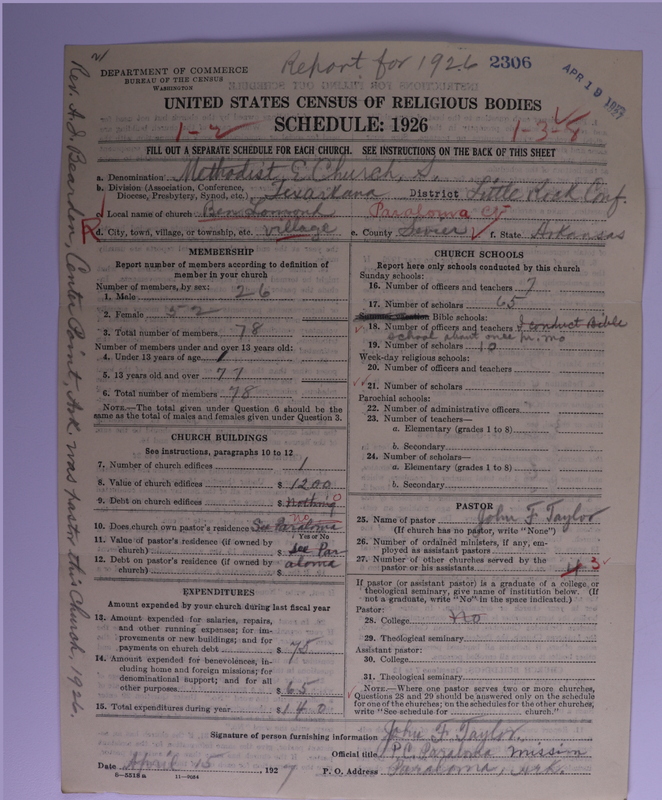 Report for 1926 2306
APR 19 1927
DEPARTMENT OF COMMERCE
BUREAU OF THE CENSUS
WASHINGTON
UNITED STATES CENSUS OF RELIGIOUS BODIES
SCHEDULE: 1926
1-2 1-3-4
FILL OUT A SEPARATE SCHEDULE FOR EACH CHURCH. SEE INSTRUCTIONS ON THE BACK OF THIS SHEET
a. Denomination Methodist E. Church, S.
b. Division (Association, Conference,
Diocese, Presbytery, Synod, etc.) Texarkana District Little Rock Conf.
c. Local name of church Ben Lomond Paraloma Ct
d. City, town, village, or township, etc. village e. County Sevier f. State Arkansas
MEMBERSHIP
Report number of members according to definition of
member in your church
Number of members, by sex:
1. Male 26
2. Female 52
3. Total number of members 78
Number of members under and over 13 years old:
4. Under 13 years of age 1
5. 13 years old and over 77
6. Total number of members 78
NOTE.—The total given under Question 6 should be the
same as the total of males and females given under Question 3.
CHURCH BUILDINGS
See instructions, paragraphs 10 to 12
7. Number of church edifices 1
8. Value of church edifices $ 1200
9. Debt on church edifices $ Nothing 0
10. Does church own pastor's residence See Paraloma no
Yes or No
11. Value of pastor's residence (if owned by
church) $ See Par
12. Debt on pastor's residence (if owned by
church) $ aloma
EXPENDITURES
Amount expended by your church during last fiscal year
13. Amount expended for salaries, repairs,
and other running expenses; for im-
provements or new buildings; and for
payments on church debt $ 75
14. Amount expended for benevolences, in-
cluding home and foreign missions; for
denominational support; and for all
other purposes $ 65
15. Total expenditures during year $ 140
CHURCH SCHOOLS
Report here only schools conducted by this church
Sunday schools:
16. Number of officers and teachers 7
17. Number of scholars 65
Bible schools:
18. Number of officers and teachers I conduct Bible
school about once pr. mo
19. Number of scholars 10
Week-day religious schools:
20. Number of officers and teachers
21. Number of scholars
Parochial schools:
22. Number of administrative officers
23. Number of teachers—
a. Elementary (grades 1 to 8)
b. Secondary
24. Number of scholars—
a. Elementary (grades 1 to 8)
b. Secondary
PASTOR
25. Name of pastor John F Taylor
(If church has no pastor, write "None")
26. Number of ordained ministers, if any, em-
ployed as assistant pastors
27. Number of other churches served by the
pastor or his assistants 4 3
If pastor (or assistant pastor) is a graduate of a college or
theological seminary, give name of institution below. (If
not a graduate, write "No" in the space indicated.)
Pastor:
28. College No
29. Theological seminary
Assistant pastor:
30. College
31. Theological seminary
NOTE.—Where one pastor serves two or more churches,
Questions 28 and 29 should be answered only on the schedule
for one of the churches; on the schedules for the other churches,
write "See schedule for church."
Signature of person furnishing information John F Taylor
Official title P.C. Paraloma Mission
Date April 15, 1927 P. O. Address Paraloma, Ark.
6-5518a 11-9084
Rev. A.J. Bearden, Center Point, Ark was pastor this Church, 1926.